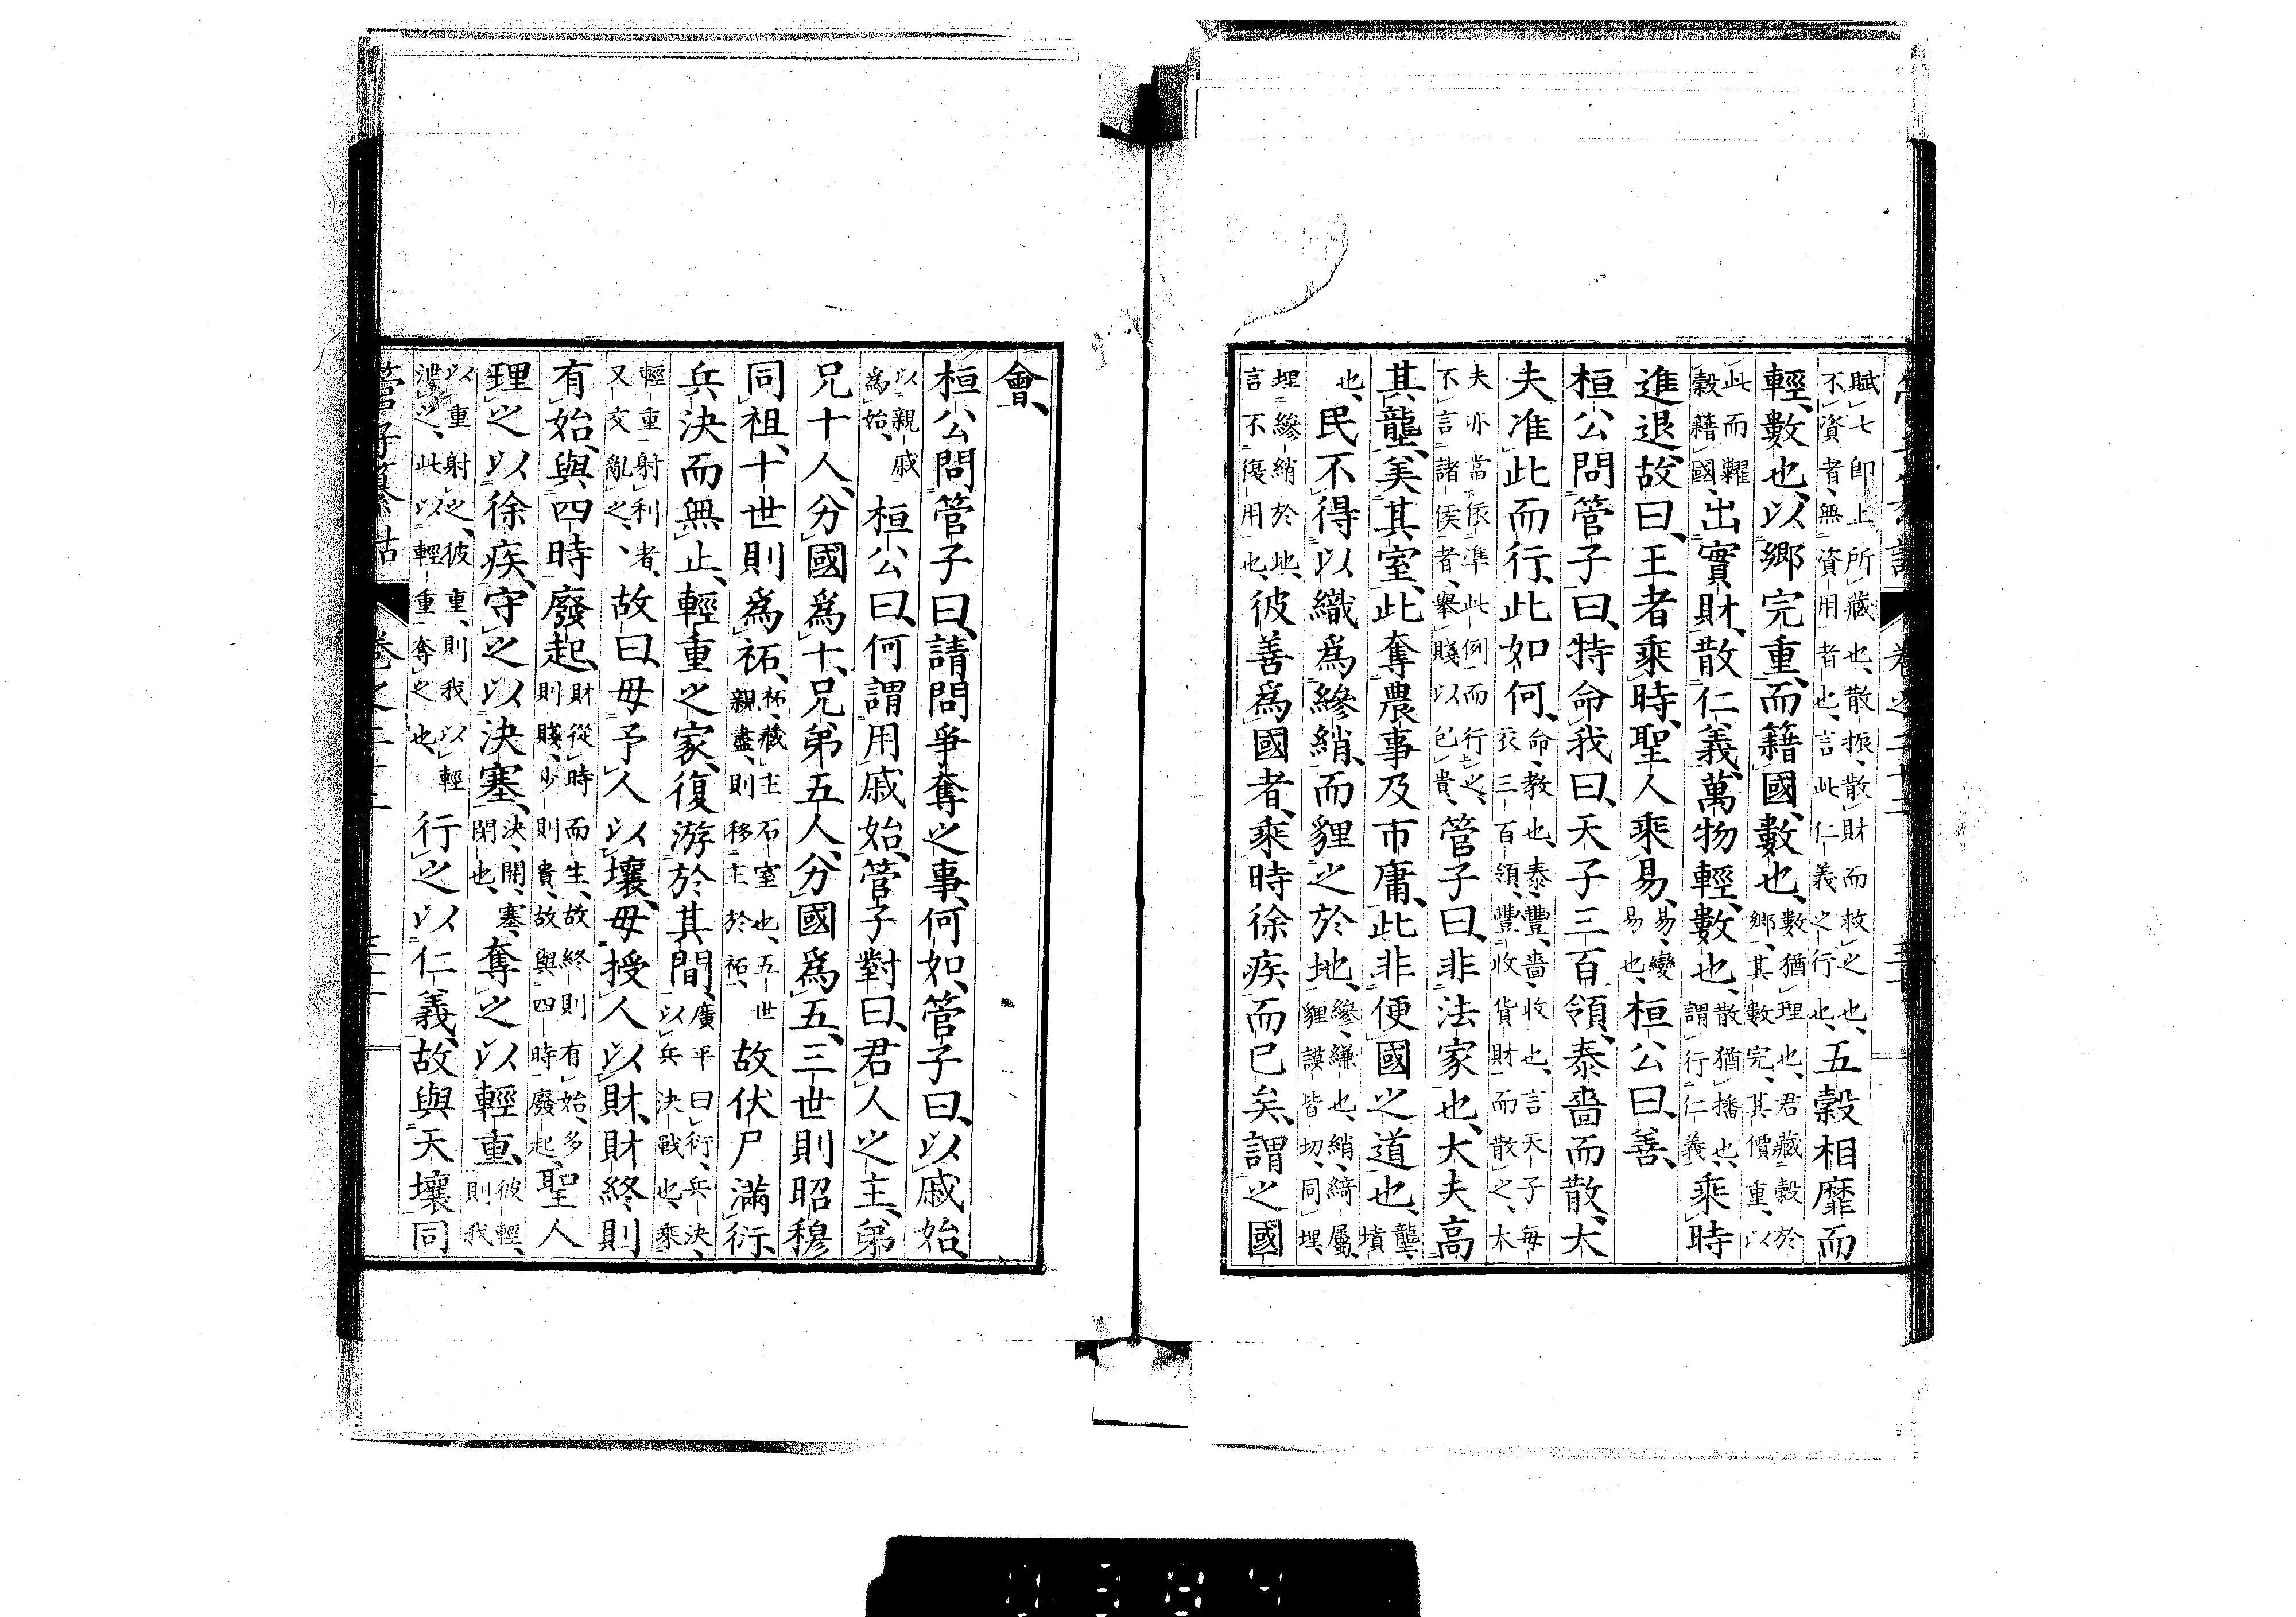 卷之二十二
賦七即上所藏也、散振、散財而救之也、不資者、無資用者也、言此仁義之行也、五穀相靡而
輕、數也、以鄉完重、而籍國、數也、數猶理也、君藏穀於鄉、其數完、其價重、以
此而糶穀籍國、出實財、散仁義、萬物輕、數也、散猶播也、謂行仁義、乘時
進退、故曰、王者乘時、聖人乘易、易、變易也、桓公曰、善、
桓公問管子曰、特命我曰、天子三百領、泰嗇而散、大
夫准此而行、此如何、命、教也、泰、豐、嗇、收也、言天子每衣三百領、豐收貨財而散之、大
夫亦當依準此例而行之、不言諸侯者、舉賤以包貴、管子曰、非法家也、大夫高
其壟、美其室、此奪農事及市庸、此非便國之道也、壟、墳
也、民不得以織爲縿綃、而貍之於地、縿、縑也、綃、綺屬、貍謨皆切、同埋、
埋縿綃於地、言不復用也、彼善爲國者、乘時徐疾而已矣、謂之國
會、
桓公問管子曰、請問爭奪之事、何如、管子曰、以戚始、
以親戚爲始、桓公曰、何謂用戚始、管子對曰、君人之主、弟
兄十人、分國爲十、兄弟五人、分國爲五、三世則昭穆
同祖、十世則爲祏、祏、藏主石室也、五世親盡、則移主於祏、故伏尸滿衍、
兵決而無止、輕重之家、復游於其間、廣平曰衍、兵決、以兵決戰也、乘
輕重射利者、又交亂之、故曰、毋予人以壤、毋授人以財、財終則
有始、與四時廢起、財從時而生、故終則有始、多則賤、少則貴、故與四時廢起、聖人
理之以徐疾、守之以決塞、決、開、塞、閉也、奪之以輕重、彼輕、則我
以重射之、彼重、則我以輕泄之、此以輕重奪之也、行之以仁義、故與天壤同
管子纂詁 卷之二十二